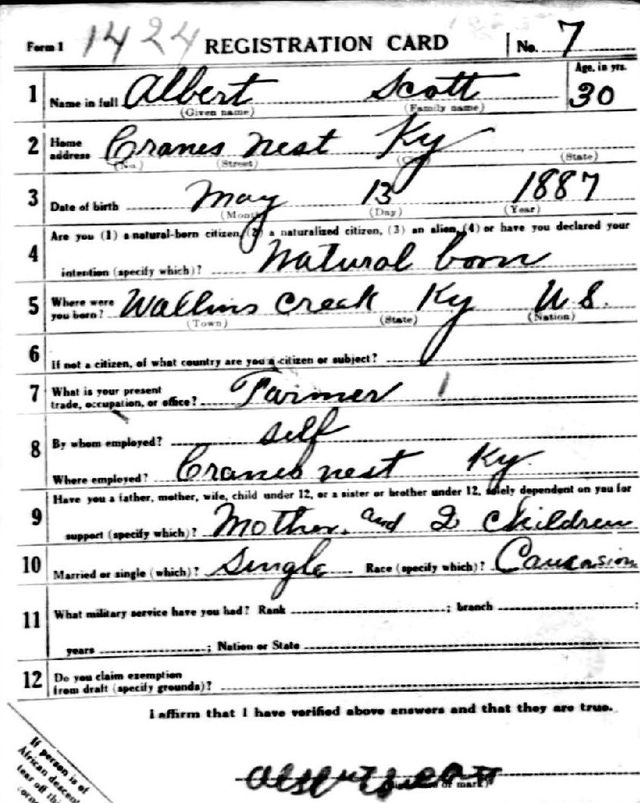 Form 1 1424 REGISTRATION CARD No. 7
1 Name in full Albert Scott Age, in yrs. 30
(Given name) (Family name)
2 Home address Cranes nest Ky
(No.) (Street) (State)
3 Date of birth May 13 1887
(Month) (Day) (Year)
4 Are you (1) a natural-born citizen, (2) a naturalized citizen, (3) an alien, (4) or have you declared your
intention (specify which)? Natural born
5 Where were you born? Wallins Creek Ky U.S.
(Town) (State) (Nation)
6 If not a citizen, of what country are you a citizen or subject?
7 What is your present trade, occupation, or office? Farmer 1
8 By whom employed? self
Where employed? Cranes nest Ky.
9 Have you a father, mother, wife, child under 12, or a sister or brother under 12, solely dependent on you for
support (specify which)? Mother, and 2 children
10 Married or single (which)? Single Race (specify which)? Caucasion
11 What military service have you had? Rank ; branch ;
years ; Nation or State
12 Do you claim exemption from draft (specify grounds)?
I affirm that I have verified above answers and that they are true.
or mark)
If person is of
African descent
tear off